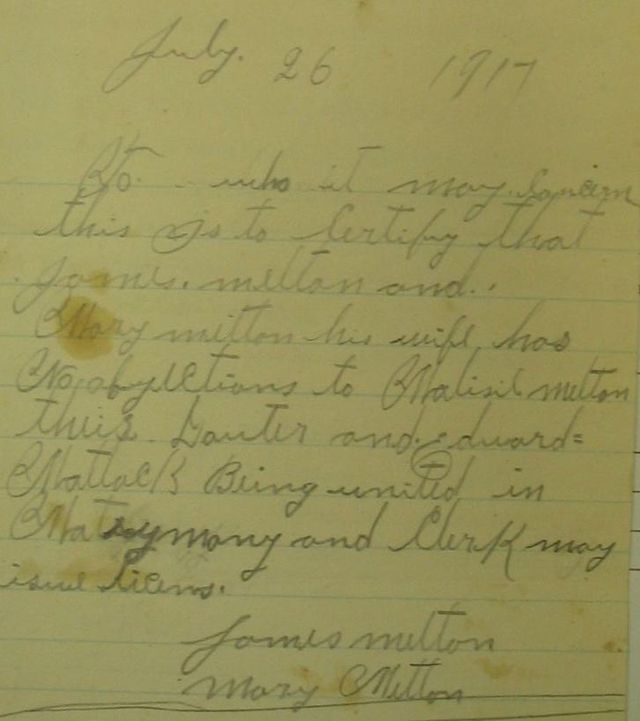 July. 26 1917
To. who it may Concern
this is to Certify that
James. melton and.
Mary milton his wife has
No obyLCtions to Malisil melton
theis Dauter and. eduard=
Mattock Being united in
Matrymony and Clerk may
isue licens.
James melton
Mary Melton